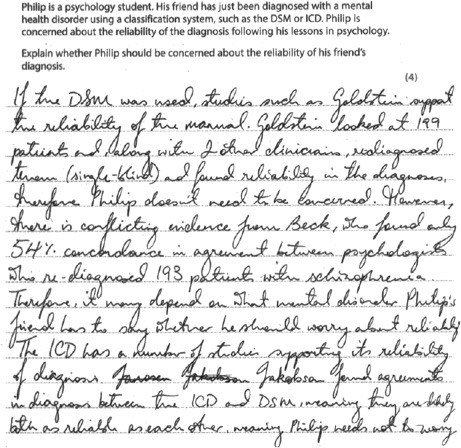 Philip is a psychology student. His friend has just been diagnosed with a mental
health disorder using a classification system, such as the DSM or ICD. Philip is
concerned about the reliability of the diagnosis following his lessons in psychology.
Explain whether Philip should be concerned about the reliability of his friend's
diagnosis.
(4)
If the DSM was used, studies such as Goldstein support
the reliability of the manual. Goldstein looked at 199
patients and, along with 2 other clinicians, rediagnosed
them (single-blind) and found reliability in the diagnoses,
therefore Philip doesn't need to be concerned. However,
there is conflicting evidence from Beck, who found only
54% concordance in agreement between psychologists
who re-diagnosed 193 patients with schizophrenia.
Therefore, it may depend on what mental disorder Philip's
friend has to say whether he should worry about reliability
The ICD has a number of studies supporting its reliability
of diagnosis. Jakobsen found agreements
in diagnosis between the ICD and DSM, meaning they are likely
both as reliable as each other, meaning Philip needs not to worry